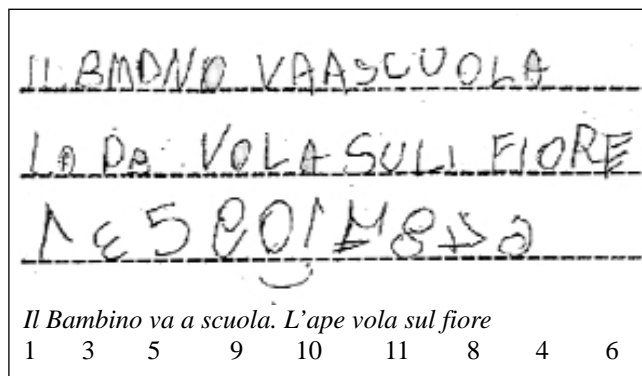 IL BMDNO VAASCUOLA
LA VOLA SULI FIORE
1 3 5 9 01 8 4 6
Il Bambino va a scuola. L'ape vola sul fiore
1 3 5 9 10 11 8 4 6